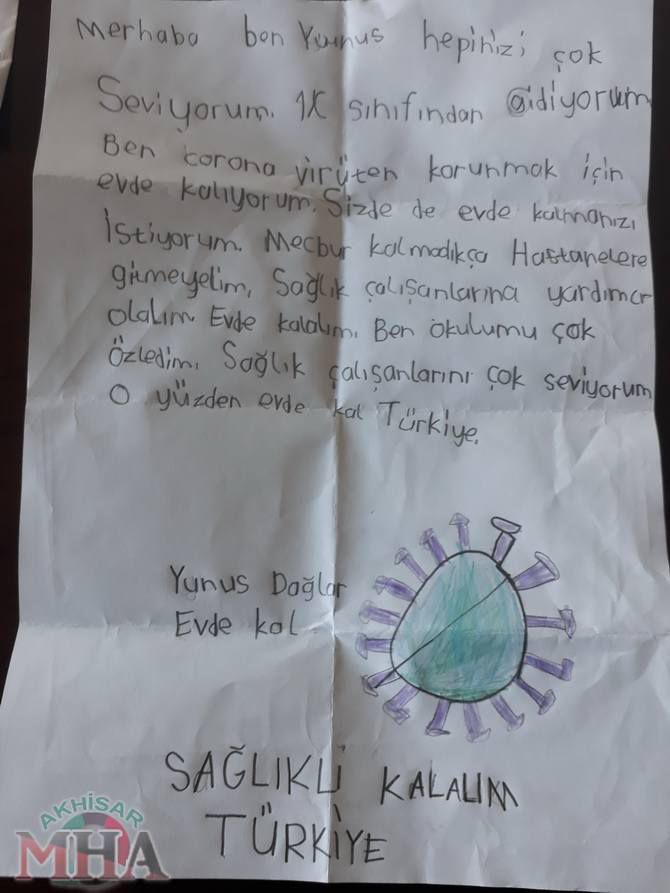 Merhaba ben Yunus hepinizi çok
Seviyorum. 1K sınıfından Gidiyorum
Ben corona virüten korunmak için
evde kalıyorum. Sizde de evde kalmanızı
İstiyorum. Mecbur kalmadıkça Hastanelere
gitmeyelim, Sağlık çalışanlarına yardımcı
olalım. Evde kalalım. Ben okulumu çok
özledim. Sağlık çalışanlarını çok seviyorum
O yüzden evde kal Türkiye.
Yunus Dağlar
Evde kal
SAĞLIKLI KALALIM
TÜRKİYE
AKHİSAR
MHA